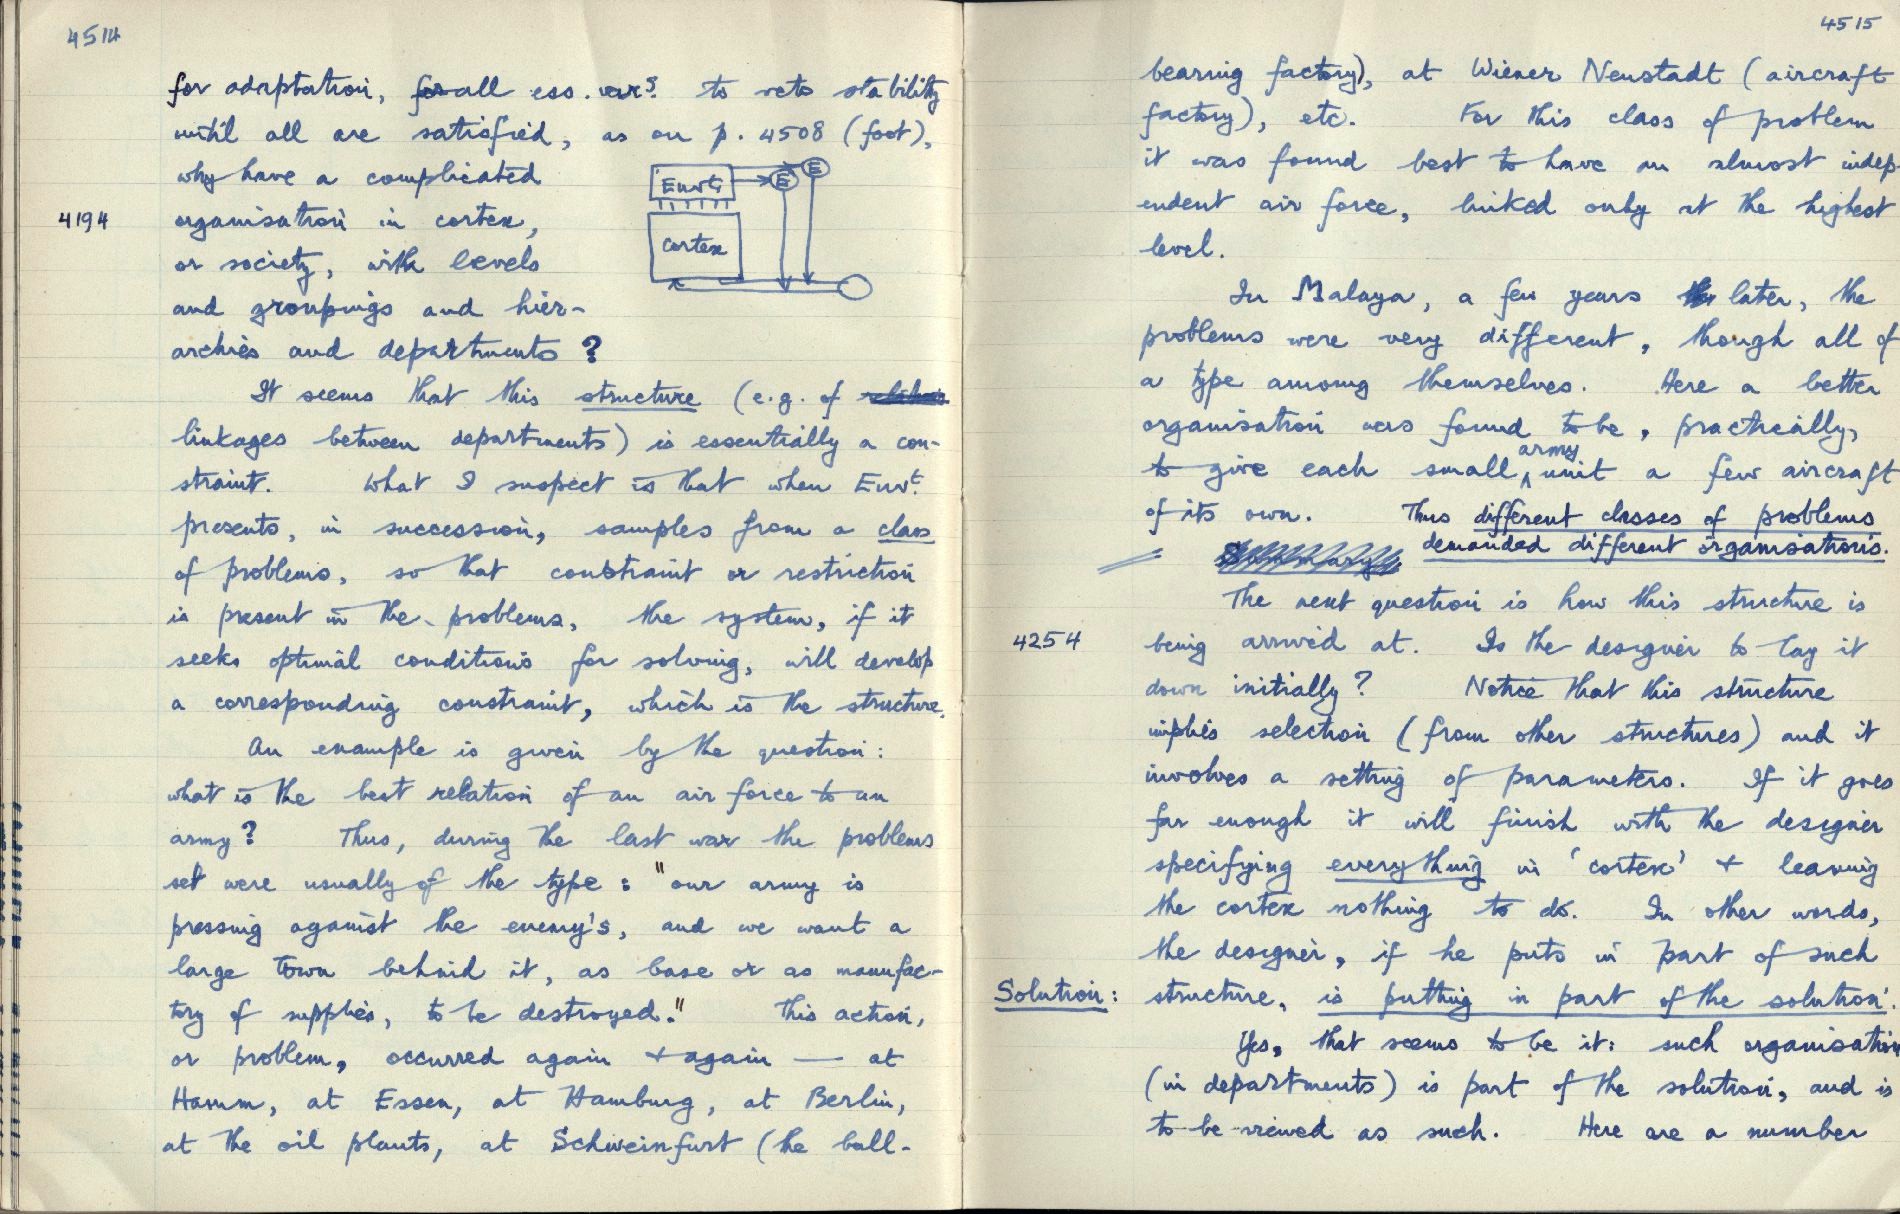 4514
for adaptation, for all ess. vars. to veto stability
until all are satisfied, as on p. 4508 (foot),
why have a complicated
4194 organisation in cortex,
or society, with levels
and groupings and hier-
archies and departments ?
Envt.
E
E
cortex
It seems that this structure (e.g. of
linkages between departments) is essentially a con-
straint. What I suspect is that when Envt.
presents, in succession, samples from a class
of problems, so that constraint or restriction
is present in the problems, the system, if it
seeks optimal conditions for solving, will develop
a corresponding constraint, which is the structure.
An example is given by the question :
what is the best relation of an air force to an
army? Thus, during the last war the problems
set were usually of the type : "our army is
pressing against the enemy's, and we want a
large town behind it, as base or as manufac-
tory of supplies, to be destroyed." This action,
or problem, occurred again + again — at
Hamm, at Essen, at Hamburg, at Berlin,
at the oil plants, at Schweinfurt (the ball-
4515
bearing factory), at Wiener Neustadt (aircraft
factory), etc. For this class of problem
it was found best to have an almost indep-
endent air force, linked only at the highest
level.
In Malaya, a few years later, the
problems were very different, though all of
a type among themselves. Here a better
organisation was found to be, practically,
to give each small army unit a few aircraft
of its own. Thus different classes of problems
demanded different organisations.
The next question is how this structure is
4254 being arrived at. Is the designer to lay it
down initially? Notice that this structure
implies selection (from other structures) and it
involves a setting of parameters. If it goes
far enough it will finish with the designer
specifying everything in 'cortex' + leaving
the cortex nothing to do. In other words,
the designer, if he puts in part of such
Solution: structure, is putting in part of the solution.
Yes, that seems to be it: such organisation
(in departments) is part of the solution, and is
to be viewed as such. Here are a number